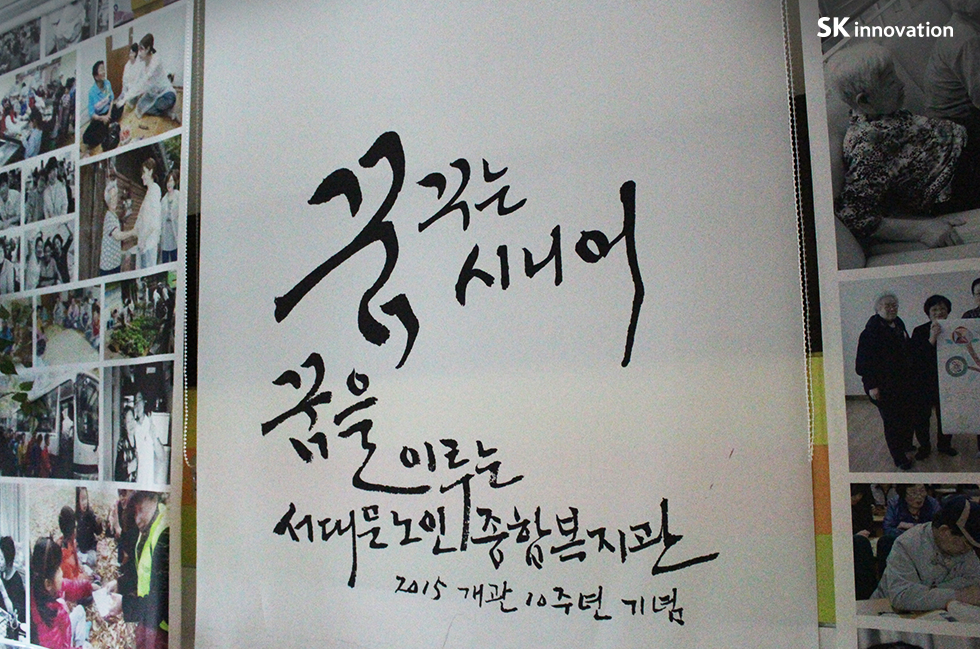 SK innovation
꿈 꾸는
시니어
꿈을 이루는
서대문노인종합복지관
2015 개관 10주년 기념